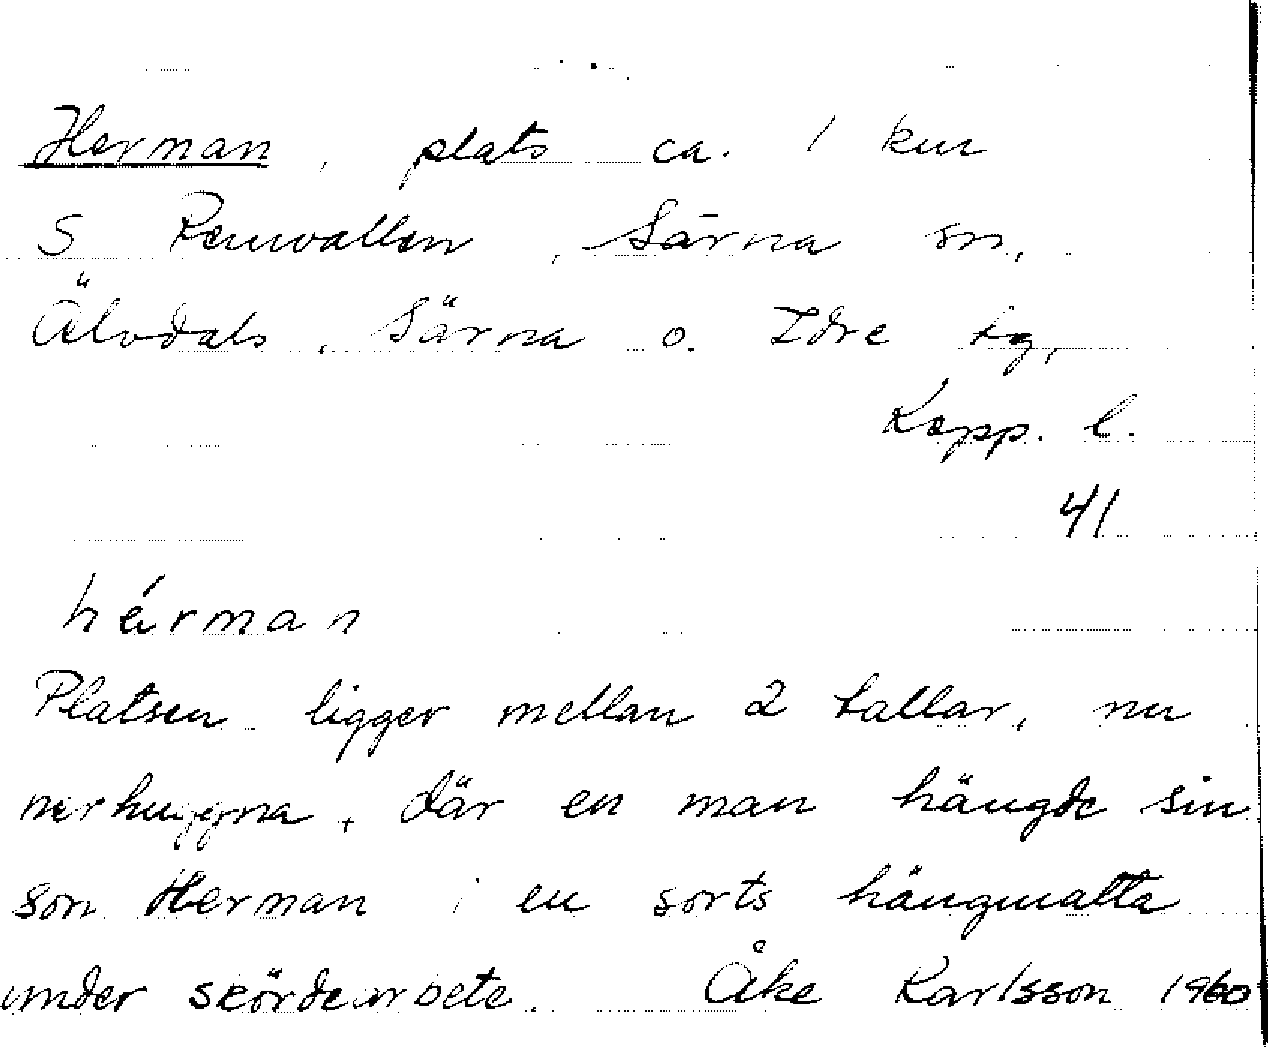 Herman, plats ca. 1 km
S Renvallen, Särna sn,
Älvdals, Särna o. Idre tg,
Kopp. l.
41
hérman
Platsen ligger mellan 2 tallar, nu
nerhuggna, där en man hängde sin
son Herman i en sorts hängmatta
under skördearbete. Åke Karlsson 1960